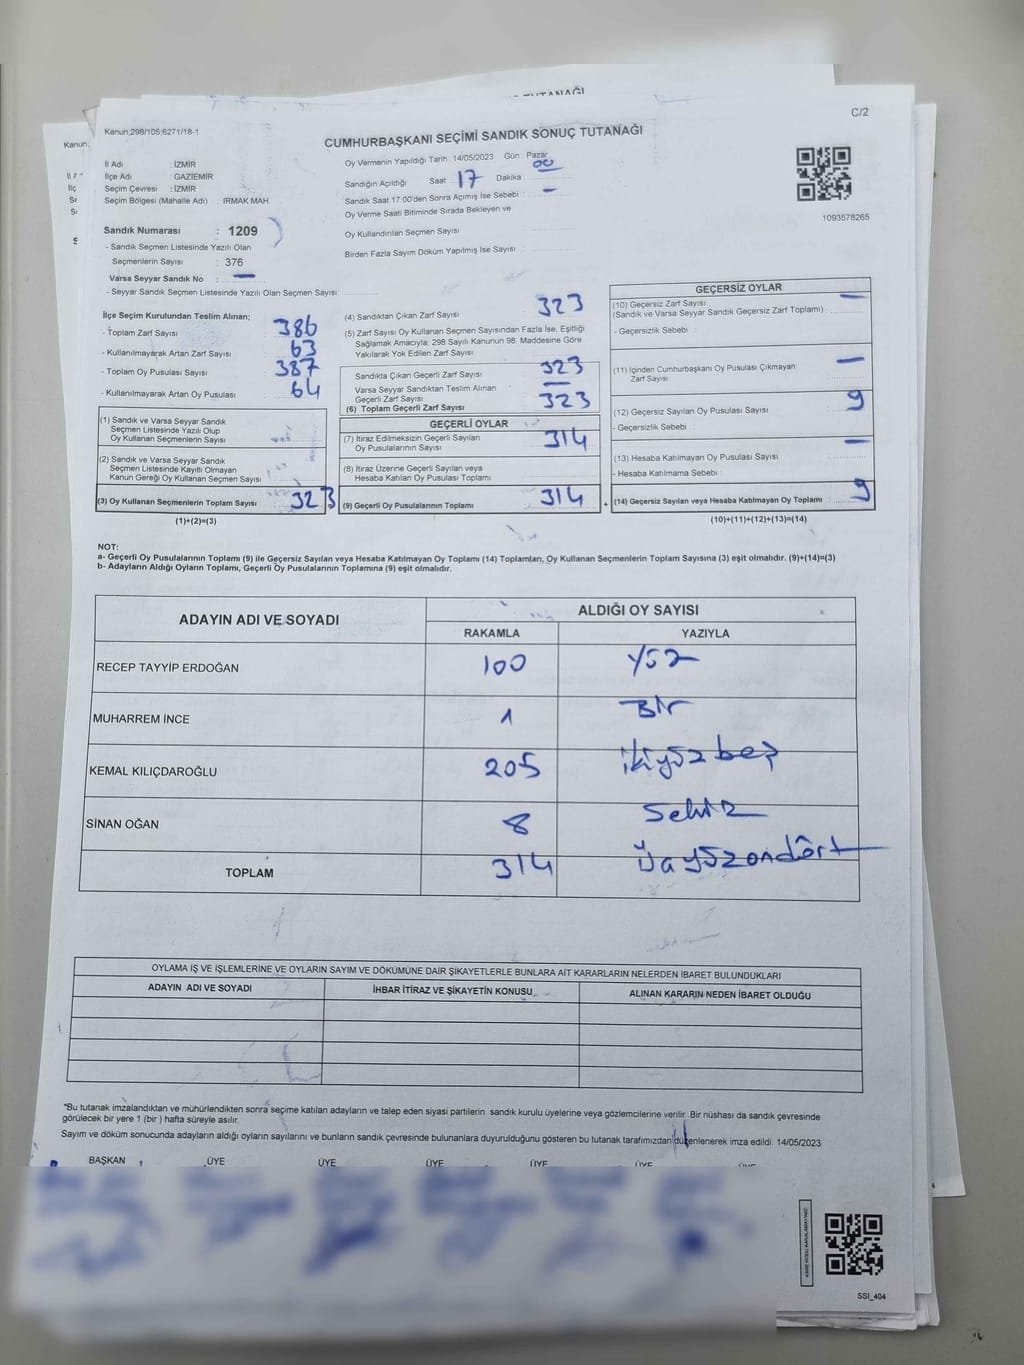 TUTANAĞI
C/2
Kanun,298/105,6271/18-1
Kanun
CUMHURBAŞKANI SEÇİMİ SANDIK SONUÇ TUTANAĞI
İl Adı : İZMİR
İlçe Adı : GAZİEMİR
Seçim Çevresi : İZMİR
Seçim Bölgesi (Mahalle Adı) : IRMAK MAH.
Oy Vermenin Yapıldığı Tarih :14/05/2023 Gün : Pazar
Sandığın Açıldığı Saat 17 Dakika 00
Sandık Saat 17:00'den Sonra Açılmış İse Sebebi : -
Oy Verme Saati Bitiminde Sırada Bekleyen ve
Oy Kullandırılan Seçmen Sayısı
Birden Fazla Sayım Döküm Yapılmış İse Sayısı
1093578265
Sandık Numarası : 1209
- Sandık Seçmen Listesinde Yazılı Olan
Seçmenlerin Sayısı : 376
Varsa Seyyar Sandık No : -
- Seyyar Sandık Seçmen Listesinde Yazılı Olan Seçmen Sayısı:
İlçe Seçim Kurulundan Teslim Alınan;
- Toplam Zarf Sayısı : 386
- Kullanılmayarak Artan Zarf Sayısı : 63
- Toplam Oy Pusulası Sayısı : 387
- Kullanılmayarak Artan Oy Pusulası : 64
(1) Sandık ve Varsa Seyyar Sandık
Seçmen Listesinde Yazılı Olup
Oy Kullanan Seçmenlerin Sayısı :
(2) Sandık ve Varsa Seyyar Sandık
Seçmen Listesinde Kayıtlı Olmayan
Kanun Gereği Oy Kullanan Seçmen Sayısı :
(3) Oy Kullanan Seçmenlerin Toplam Sayısı : 323
(1)+(2)=(3)
(4) Sandıktan Çıkan Zarf Sayısı : 323
(5) Zarf Sayısı Oy Kullanan Seçmen Sayısından Fazla İse, Eşitliği
Sağlamak Amacıyla; 298 Sayılı Kanunun 98. Maddesine Göre
Yakılarak Yok Edilen Zarf Sayısı :
Sandıkta Çıkan Geçerli Zarf Sayısı : 323
Varsa Seyyar Sandıktan Teslim Alınan
Geçerli Zarf Sayısı : -
(6) Toplam Geçerli Zarf Sayısı : 323
GEÇERLİ OYLAR
(7) İtiraz Edilmeksizin Geçerli Sayılan
Oy Pusulasının Sayısı : 314
(8) İtiraz Üzerine Geçerli Sayılan veya
Hesaba Katılan Oy Pusulası Toplamı :
(9) Geçerli Oy Pusulalarının Toplamı : 314
+
GEÇERSİZ OYLAR
(10) Geçersiz Zarf Sayısı : -
(Sandık ve Varsa Seyyar Sandık Geçersiz Zarf Toplamı)
- Geçersizlik Sebebi :
(11) İçinden Cumhurbaşkanı Oy Pusulası Çıkmayan : -
Zarf Sayısı
(12) Geçersiz Sayılan Oy Pusulası Sayısı : 9
- Geçersizlik Sebebi :
(13) Hesaba Katılmayan Oy Pusulası Sayısı : -
- Hesaba Katılmama Sebebi :
(14) Geçersiz Sayılan veya Hesaba Katılmayan Oy Toplamı : 9
(10)+(11)+(12)+(13)=(14)
NOT:
a- Geçerli Oy Pusulalarının Toplamı (9) ile Geçersiz Sayılan veya Hesaba Katılmayan Oy Toplamı (14) Toplamları, Oy Kullanan Seçmenlerin Toplam Sayısına (3) eşit olmalıdır. (9)+(14)=(3)
b- Adayların Aldığı Oyların Toplamı, Geçerli Oy Pusulalarının Toplamına (9) eşit olmalıdır.
ADAYIN ADI VE SOYADI
ALDIĞI OY SAYISI
RAKAMLA
YAZIYLA
RECEP TAYYİP ERDOĞAN 100 Yüz
MUHARREM İNCE 1 Bir
KEMAL KILIÇDAROĞLU 205 ikiyüzbeş
SİNAN OĞAN 8 Sekiz
TOPLAM 314 Üçyüzondört
OYLAMA İŞ VE İŞLEMLERİNE VE OYLARIN SAYIM VE DÖKÜMÜNE DAİR ŞİKAYETLERLE BUNLARA AİT KARARLARIN NELERDEN İBARET BULUNDUKLARI
ADAYIN ADI VE SOYADI
İHBAR İTİRAZ VE ŞİKAYETİN KONUSU
ALINAN KARARIN NEDEN İBARET OLDUĞU
*Bu tutanak imzalandıktan ve mühürlendikten sonra seçime katılan adayların ve talep eden siyasi partilerin sandık kurulu üyelerine veya gözlemcilerine verilir. Bir nüshası da sandık çevresinde
görülecek bir yere 1 (bir) hafta süreyle asılır.
Sayım ve döküm sonucunda adayların aldığı oyların sayılarını ve bunların sandık çevresinde bulunanlara duyurulduğunu gösteren bu tutanak tarafımızdan düzenlenerek imza edildi. 14/05/2023
BAŞKAN ÜYE ÜYE ÜYE ÜYE ÜYE
SSI_404